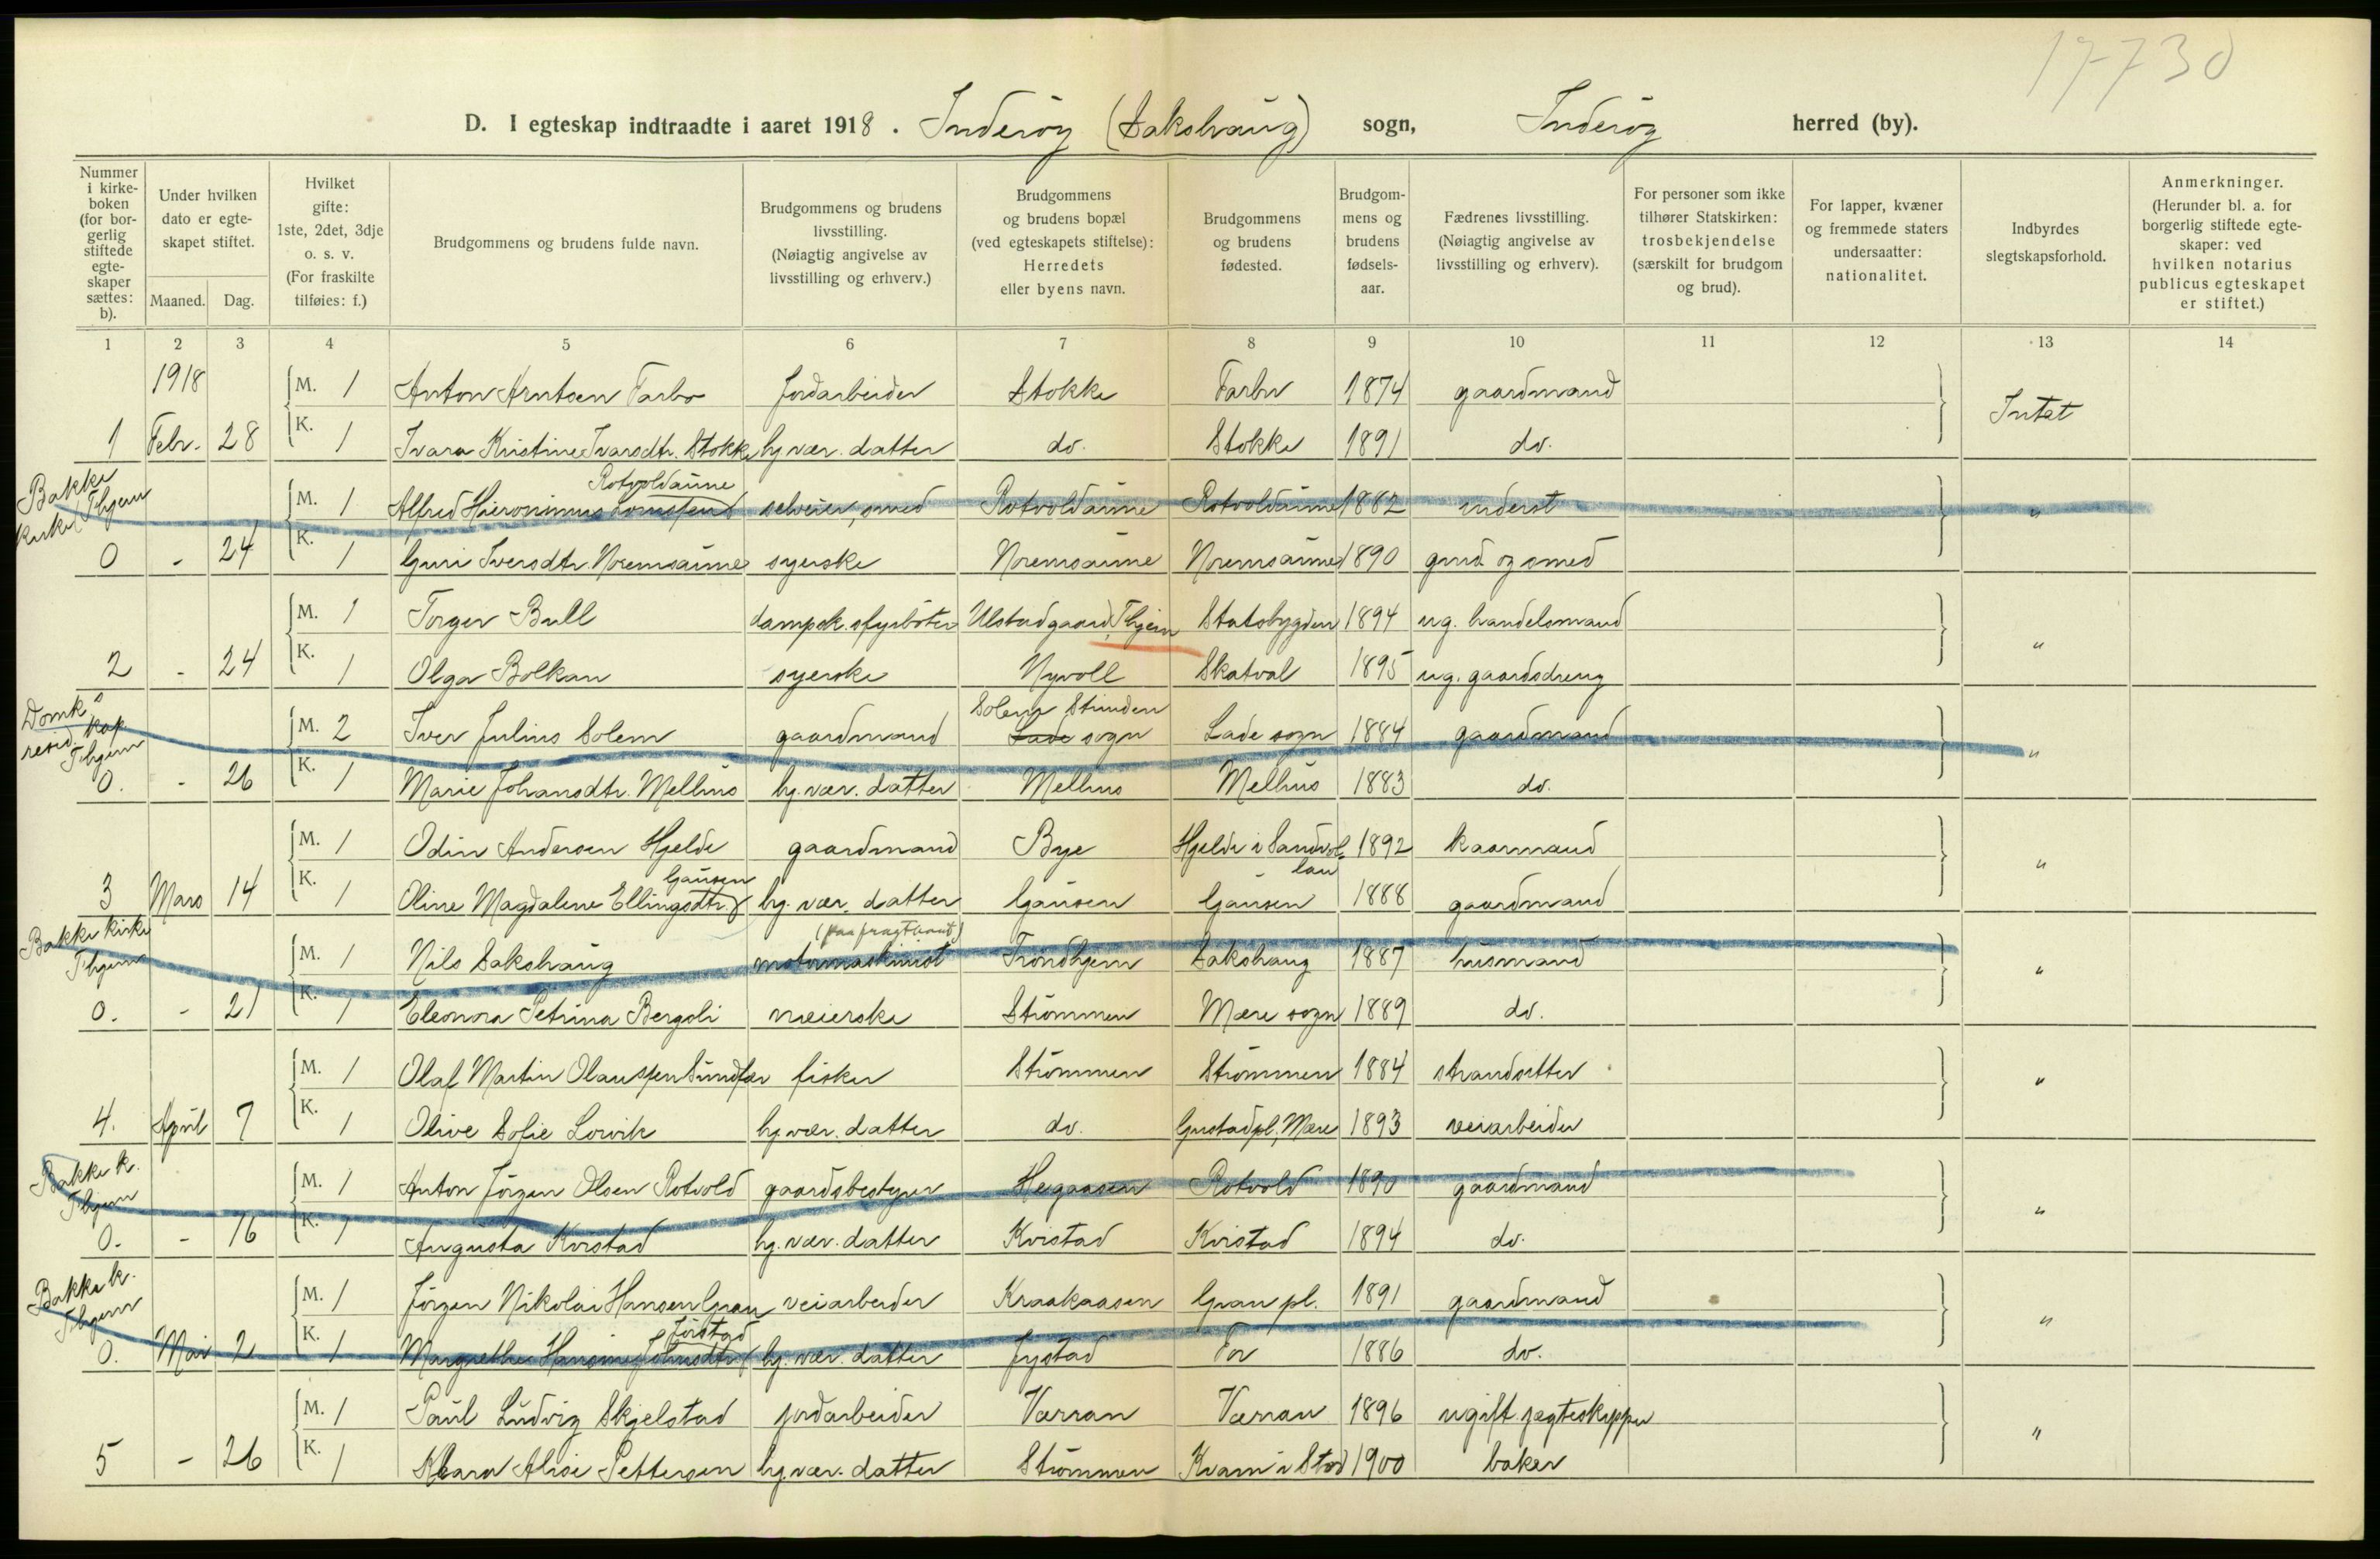 17730
D. I egteskap indtraadte i aaret 1918. Inderöy (Sakshaug) sogn, Inderöy herred (by).
Nummer i kirkeboken (for borgerlig stiftede egteskaper sættes: b).
Under hvilken dato er egteskapet stiftet.
Maaned. Dag.
Hvilket gifte: 1ste, 2det, 3dje o. s. v. (For fraskilte tilføies: f.)
Brudgommens og brudens fulde navn.
Brudgommens og brudens livsstilling. (Nøiagtig angivelse av livsstilling og erhverv.)
Brudgommens og brudens bopæl (ved egteskapets stiftelse): Herredets eller byens navn.
Brudgommens og brudens fødested.
Brudgommens og brudens fødselsaar.
Fædrenes livsstilling. (Nøiagtig angivelse av livsstilling og erhverv).
For personer som ikke tilhører Statskirken: trosbekjendelse (særskilt for brudgom og brud).
For lapper, kvæner og fremmede staters undersaatter: nationalitet.
Indbyrdes slegtskapsforhold.
Anmerkninger. (Herunder bl. a. for borgerlig stiftede egteskaper: ved hvilken notarius publicus egteskapet er stiftet.)
1 2 3 4 5 6 7 8 9 10 11 12 13 14
1918 M. 1 Anton Arntsen Farbo Jordarbeider Stokke Farbu 1874 gaardmand Intet
1 Febr. 28 K. 1 Ivara Kristine Ivarsdtr. Stokke hj. vær. datter do. Stokke 1891 do.
Bakke kirke Thjem
Rotvoldaune
M. 1 Alfred Hieronimus Lornsen selveier, smed Rotvoldaune Rotvoldaune 1882 inderst "
0 - 24 K. 1 Guri Iversdtr. Noremsaune syerske Noremsaune Noremsaune 1890 gmd og smed
M. 1 Torger Bull dampsk. fyrböter Ulstadgaard, Thjem Statsbygden 1894 ug. handelsmand "
2 - 24 K. 1 Olga Bolkan syerske Nyvoll Skatval 1895 ug. gaardsdreng
Domk. s resid. kap. Thjem
Solem Strinden
M. 2 Iver Julius Solem gaardmand Lade sogn Lade sogn 1884 gaardmand "
0. - 26 K. 1 Marie Johansdtr. Melhus hj. vær. datter Melhus Melhus 1883 do.
M. 1 Odin Andersen Hjelde gaardmand Bye Hjelde i Sandvollan 1892 kaarmand "
Gausen
3 Mars 14 K. 1 Oline Magdalene Ellingsdtr. hj. vær. datter Gausen Gausen 1888 gaardmand
Bakke kirke Thjem
(paa fragtbaat)
M. 1 Nils Sakshaug motormaskinist Trondhjem Sakshaug 1887 husmand "
0. - 21 K. 1 Eleonora Petrina Bergsli meierske Strömmen Mære sogn 1889 do.
M. 1 Olaf Martin Olaussen Sundfær fisker Strömmen Strömmen 1884 strandsitter "
4. April 7 K. 1 Olive Sofie Lorvik hj. vær. datter do. Gustad pl., Mære 1893 veiarbeider
Bakke k. Thjem
M. 1 Anton Jörgen Olsen Rotvold gaardsbestyrer Hegaasen Rotvold 1890 gaardmand "
0. - 16 K. 1 Augusta Kvistad hj. vær. datter Kvistad Kvistad 1894 do.
Bakke k. Thjem
M. 1 Jörgen Nikolai Hansen Gran veiarbeider Kraakaasen Gran pl. 1891 gaardmand "
Jörstad
0. Mai 2 K. 1 Margrethe Hansine Johnsdtr. hj. vær. datter Jystad For 1886 do.
M. 1 Paul Ludvig Skjelstad jordarbeider Værran Værran 1896 ugift jægteskipper "
5 - 26 K. 1 Klara Alise Pettersen hj. vær. datter Strömmen Kvam i Stod 1900 baker